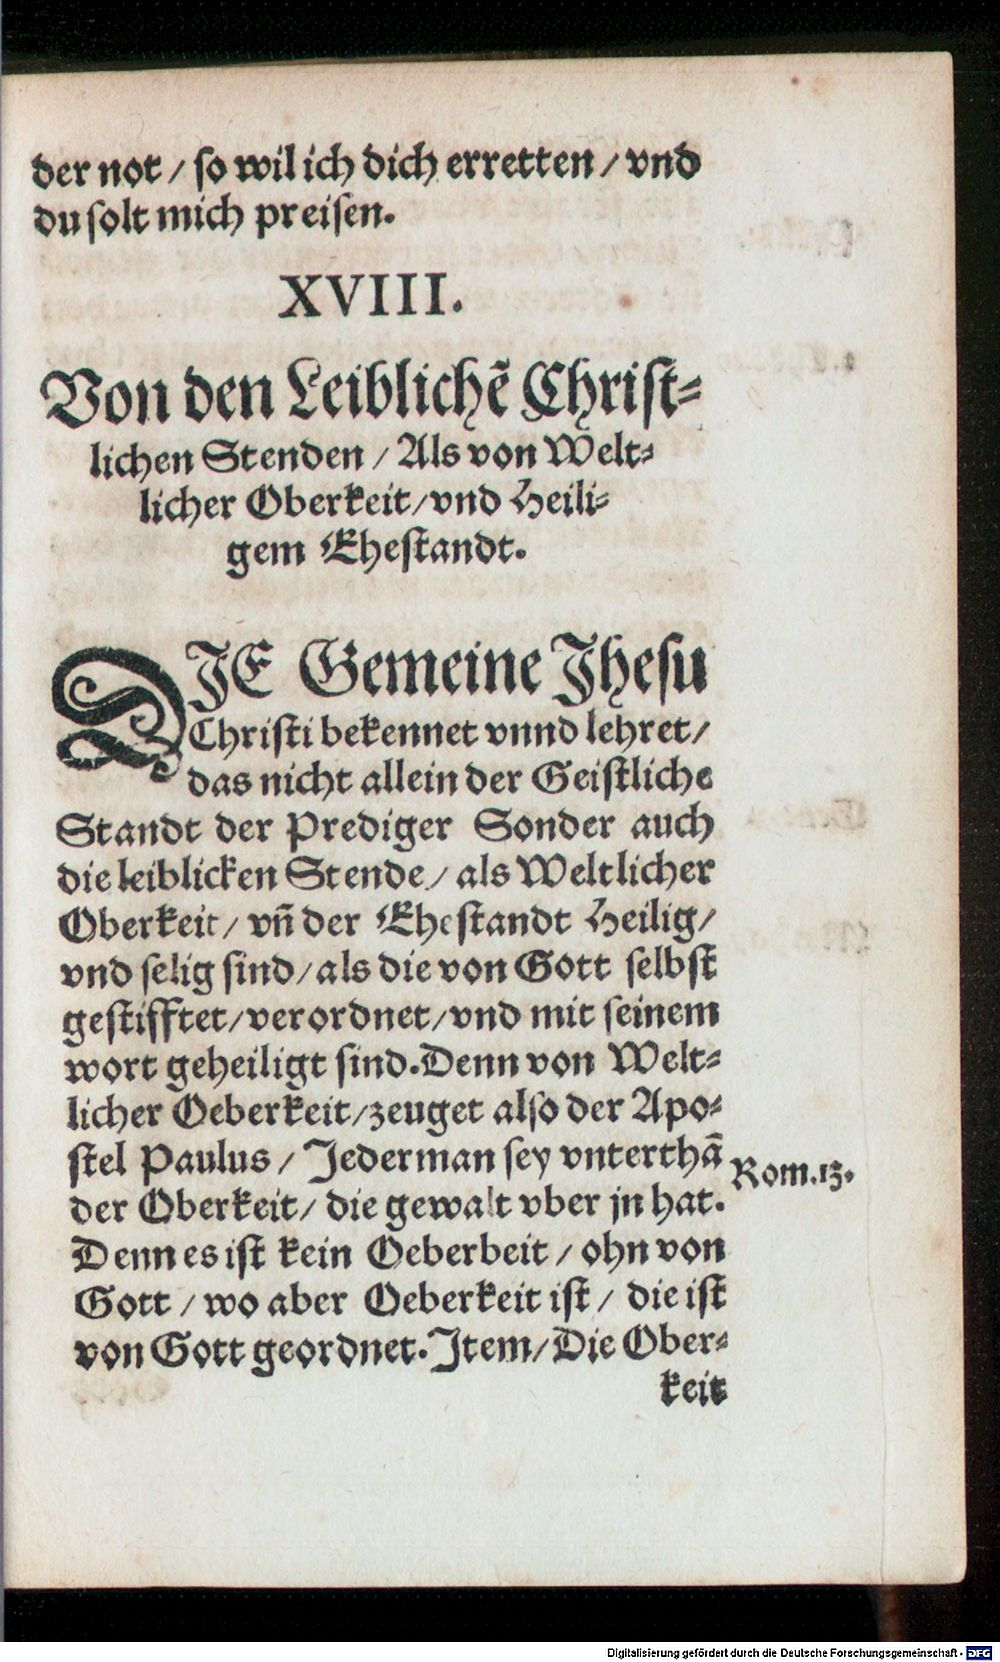 der not / so wil ich dich erretten / vnd
du solt mich preisen.
XVIII.
Von den Leiblichẽ Christ-
lichen Stenden / Als von Welt-
licher Oberkeit/vnd Heili-
gem Ehestandt.
DIE Gemeine Jhesu
Christi bekennet vnnd lehret/
das nicht allein der Geistliche
Standt der Prediger Sonder auch
die leiblicken Stende / als Weltlicher
Oberkeit / vñ der Ehestandt Heilig/
vnd selig sind / als die von Gott selbst
gestifftet/verordnet/vnd mit seinem
wort geheiligt sind.Denn von Welt-
licher Oeberkeit/zeuget also der Apo-
stel Paulus / Jederman sey vnterthã
Rom.13.
der Oberkeit / die gewalt vber jn hat.
Denn es ist kein Oeberbeit / ohn von
Gott / wo aber Oeberkeit ist / die ist
von Gott geordnet. Jtem/Die Ober-
keit
Digitalisierung gefördert durch die Deutsche Forschungsgemeinschaft - DFG